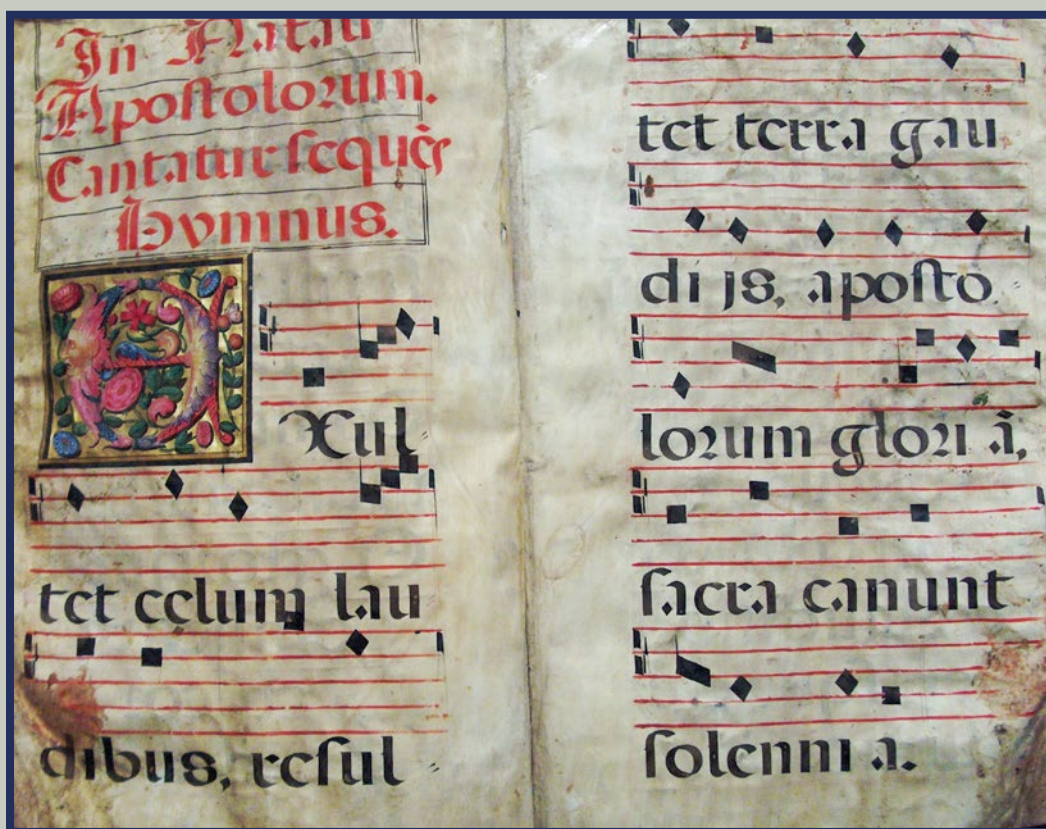 In Natali
Apostolorum.
Cantatur sequēs
Hymnus.
EXul
tet celum lau
dibus, resul
tet terra gau
dijs, aposto
lorum gloriā,
sacra canunt
solenni a.